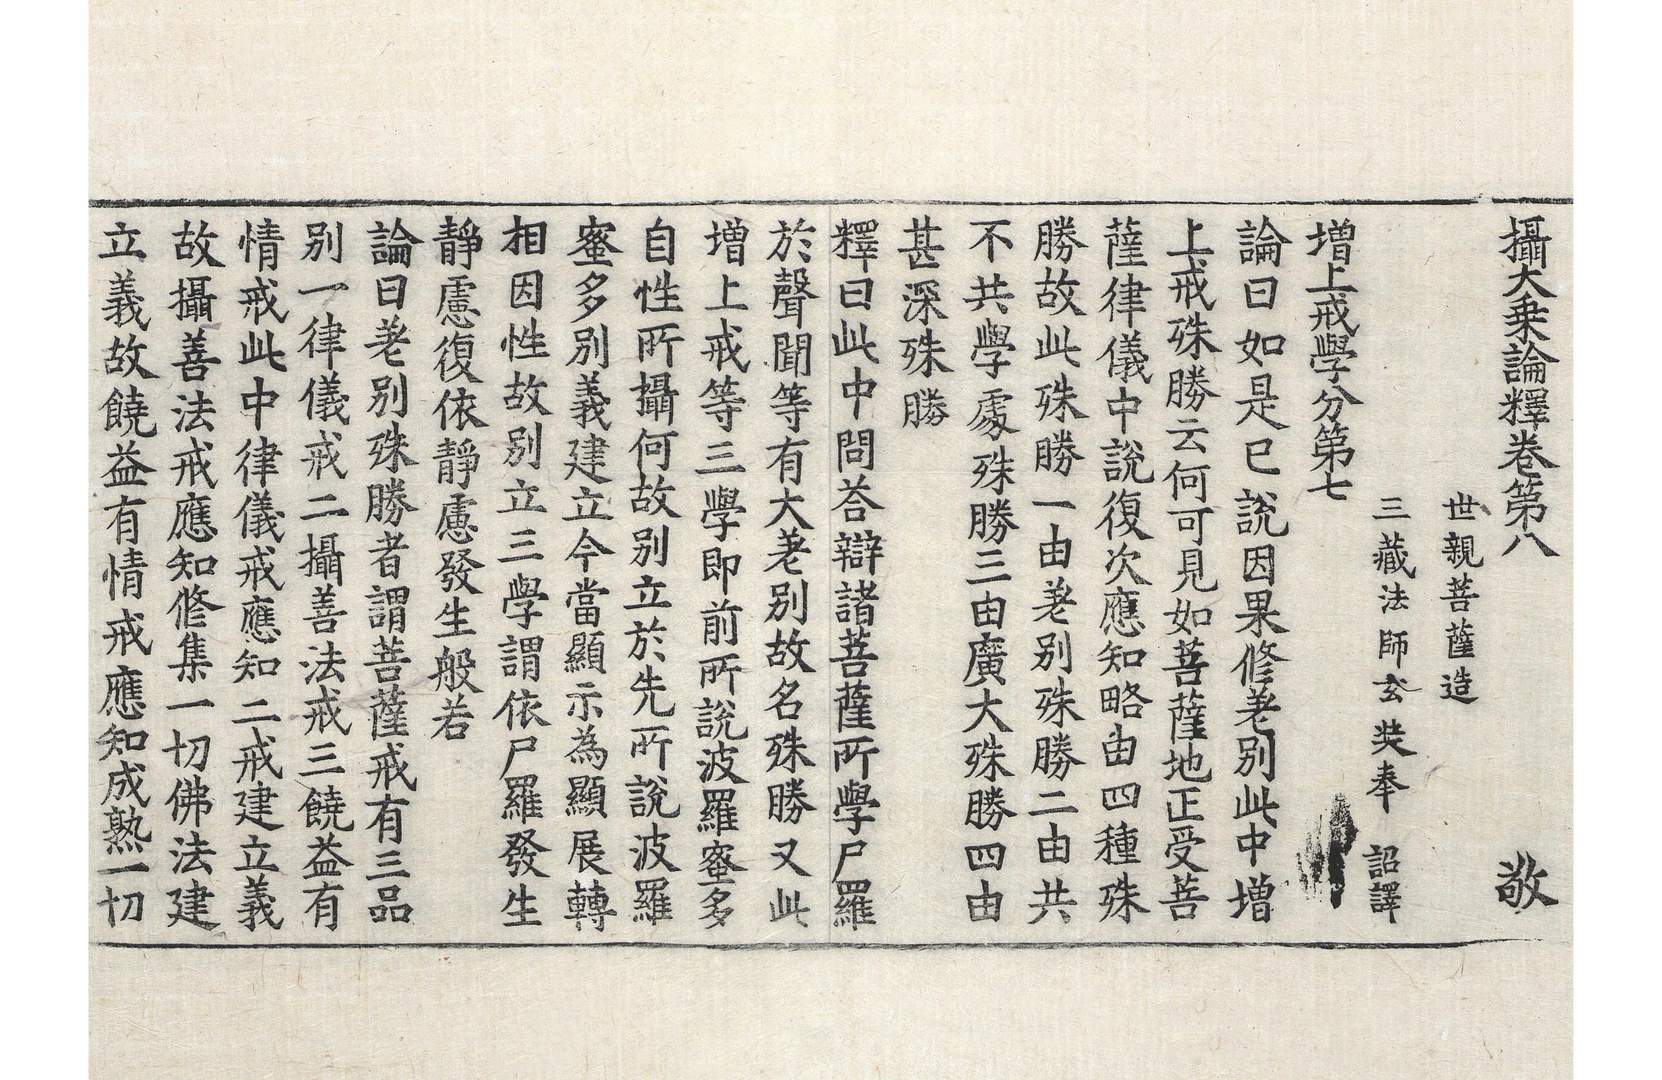 攝大乗論釋卷第八　敬
世親菩薩造
三藏法師玄奘奉　詔譯
增上戒學分第七
論曰如是已說因果修差別此中增
上戒殊勝云何可見如菩薩地正受菩
薩律儀中說復次應知略由四種殊
勝故此殊勝一由差別殊勝二由共
不共學處殊勝三由廣大殊勝四由
甚深殊勝
釋曰此中問荅辯諸菩薩所學尸羅
於聲聞等有大差別故名殊勝又此
增上戒等三學即前所說波羅蜜多
自性所攝何故別立於先所說波羅
蜜多別義建立今當顯示為顯展轉
相因性故別立三學謂依尸羅發生
靜慮復依靜慮發生般若
論曰差別殊勝者謂菩薩戒有三品
別一律儀戒二攝善法戒三饒益有
情戒此中律儀戒應知二戒建立義
故攝善法戒應知修集一切佛法建
立義故饒益有情戒應知成熟一切